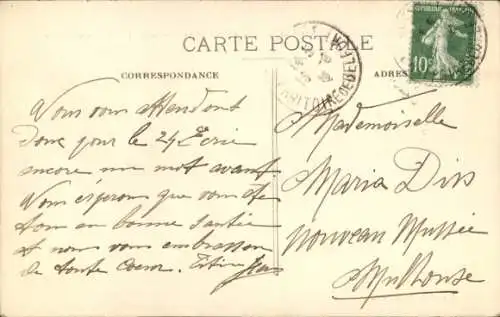 CARTE POSTALE
CORRESPONDANCE
ADRES
RÉPUBLIQUE FRANÇAISE
10c
Nous vous attendont
donc pour le 24 Écrie
encore un mot avant
Nous éspèrons que vous ete
tous en bonne santée
et nous vous embrasson
de toute coeur.
Mademoiselle
Maria Dirs
nouveau Mussée
Mulhouse